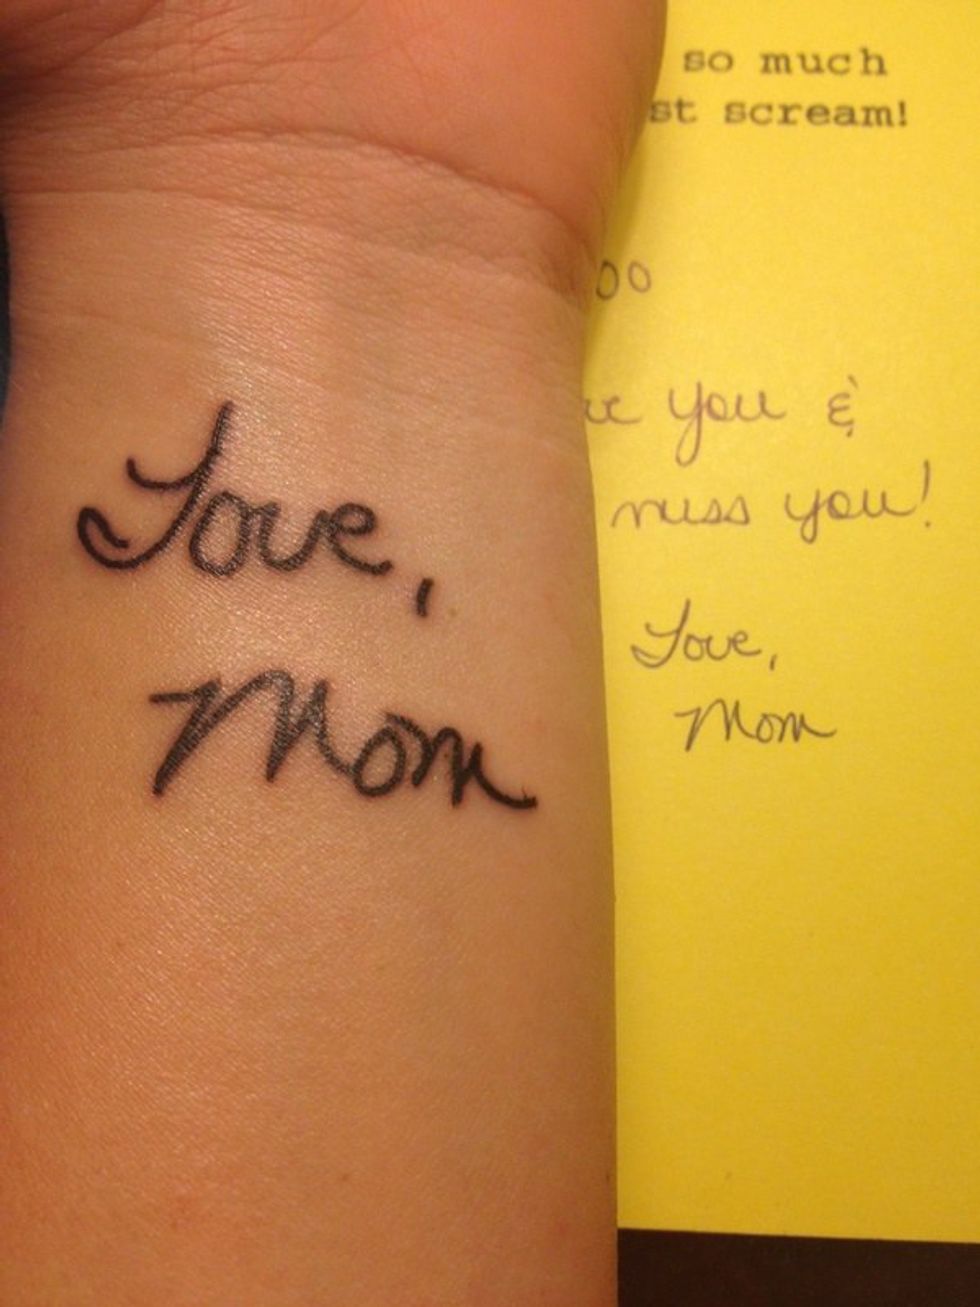 Love,
Mom
so much
scream!
you &
miss you!
Love,
Mom